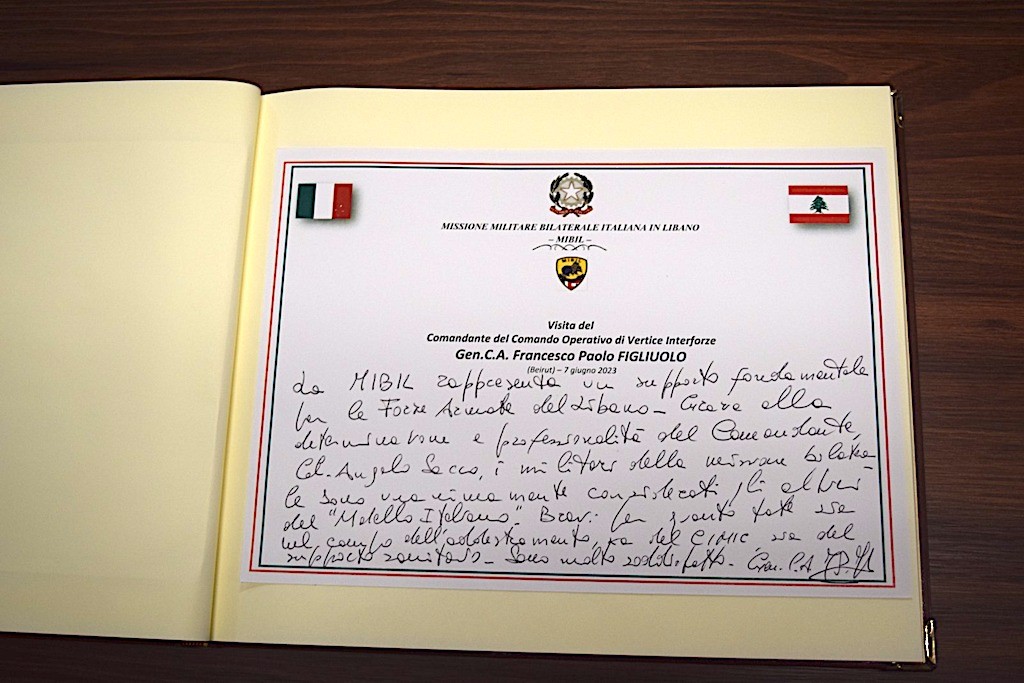 MISSIONE MILITARE BILATERALE ITALIANA IN LIBANO
– MIBIL –
MIBIL
Visita del
Comandante del Comando Operativo di Vertice Interforze
Gen.C.A. Francesco Paolo FIGLIUOLO
(Beirut) – 7 giugno 2023
La MIBIL rappresenta un supporto fondamentale
per le Forze Armate del Libano – Grazie alla
determinazione e professionalità del Comandante,
Col. Angelo Sacco, i militari della missione bilatera
le sono unanimamente considerati gli alfieri
del "Modello Italiano". Bravi per quanto fate sia
nel campo dell'addestramento, sia del CIMIC sia del
supporto sanitario – Sono molto soddisfatto – Gen. C.A